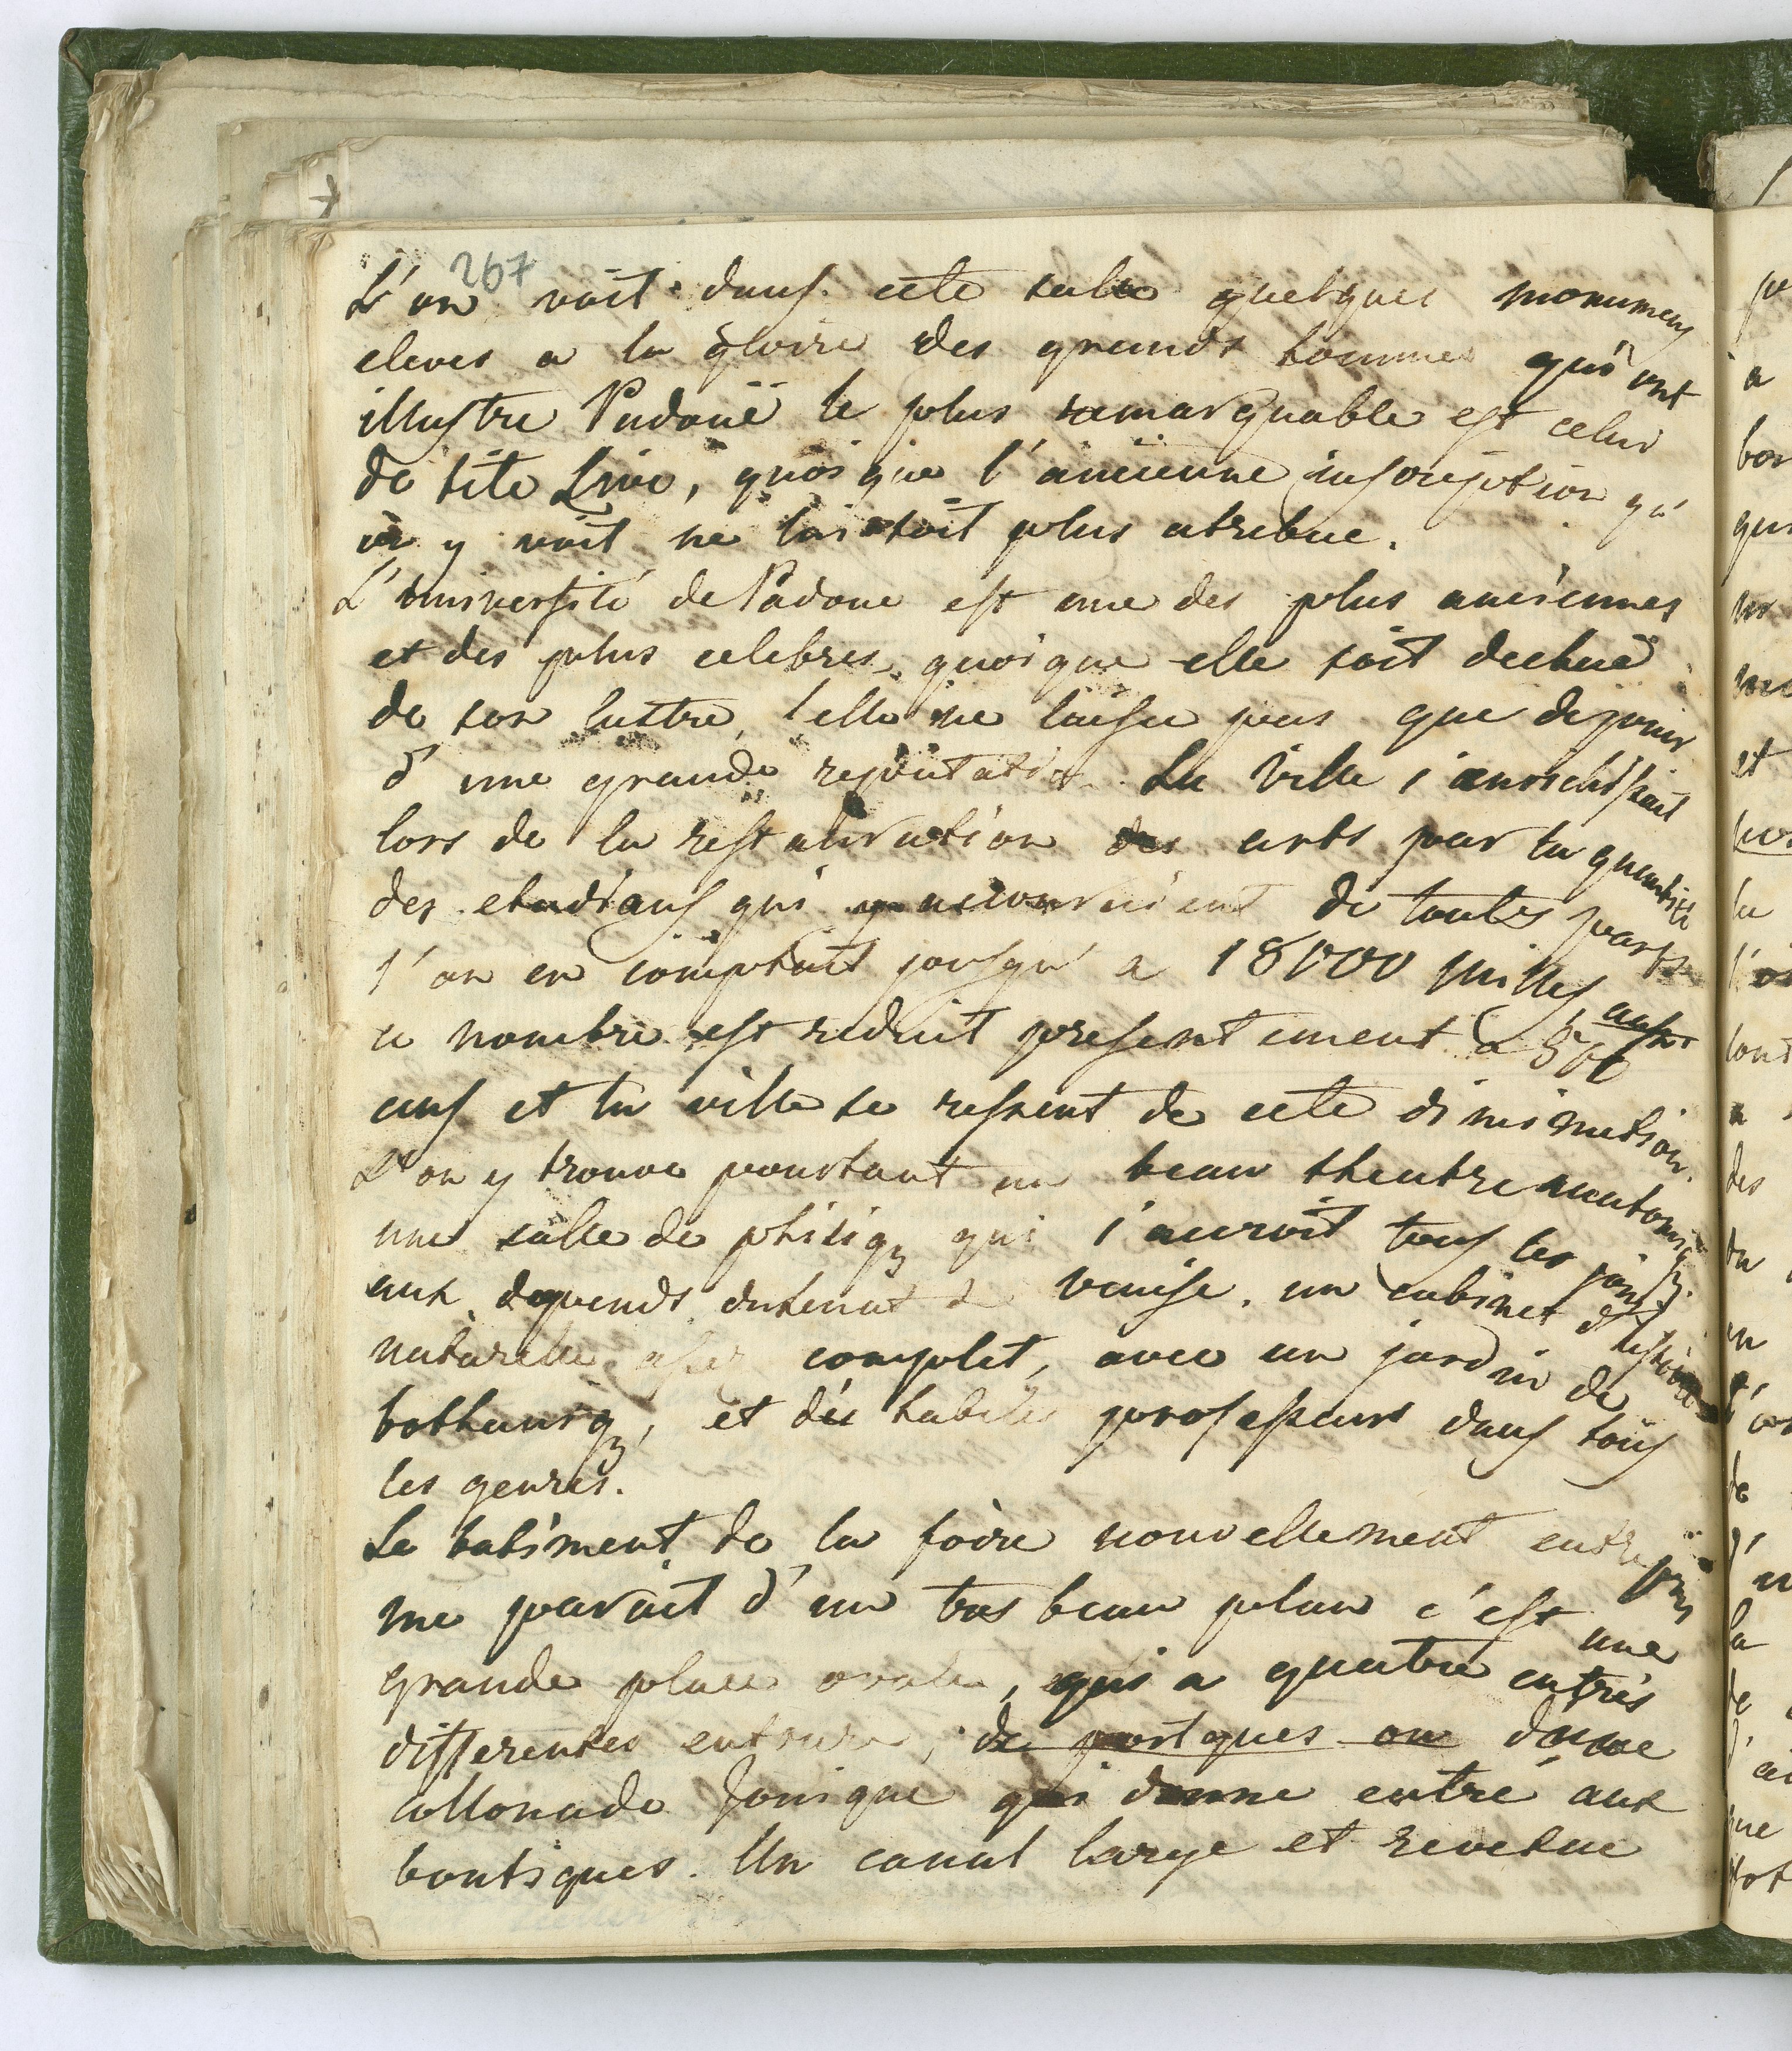 267
L'on voit dans cete salle quelques monumens
eleves a la gloire des grands hommes qui ont
illustre Padouë le plus remarquable est celui
de tite Live, quoi que l'ancienne inscription qu'
on y voit ne lui soit plus atribue.
L'université de Padoue est une des plus anciennes
et des plus celebres, quoique elle soit dechuë
de son lustre, elle ne laisse pas que de jouir
d'une grande reputation. La Ville s'anrichissait
lors de la restauration des arts par la quantité
des etudians qui y accouraient de toutes parts
l'on en comptait jousqu'a 18000 milles
ce nombre est reduit presentement a 500
ans et la ville se ressent de cete diminution.
L'on y trouve pourtant un beau theatre anatomiq;
une salle de phisiq; qui s'acroit tous les jours
aux depends du senat d Venise. un cabinet d'histoire
naturelle assez complet, avec un jardin de
bothaniq;, et des habiles professeurs dans tous
les genres.
Le batiment de la foire nouvellement entrepris
me parait d'un tres beau plan c'est une
grande place ovale, qui a quatre entrés
differentes de portques ou d'une
collonade Jonique qui donne entré aux
boutiques. Un canal large et revetue